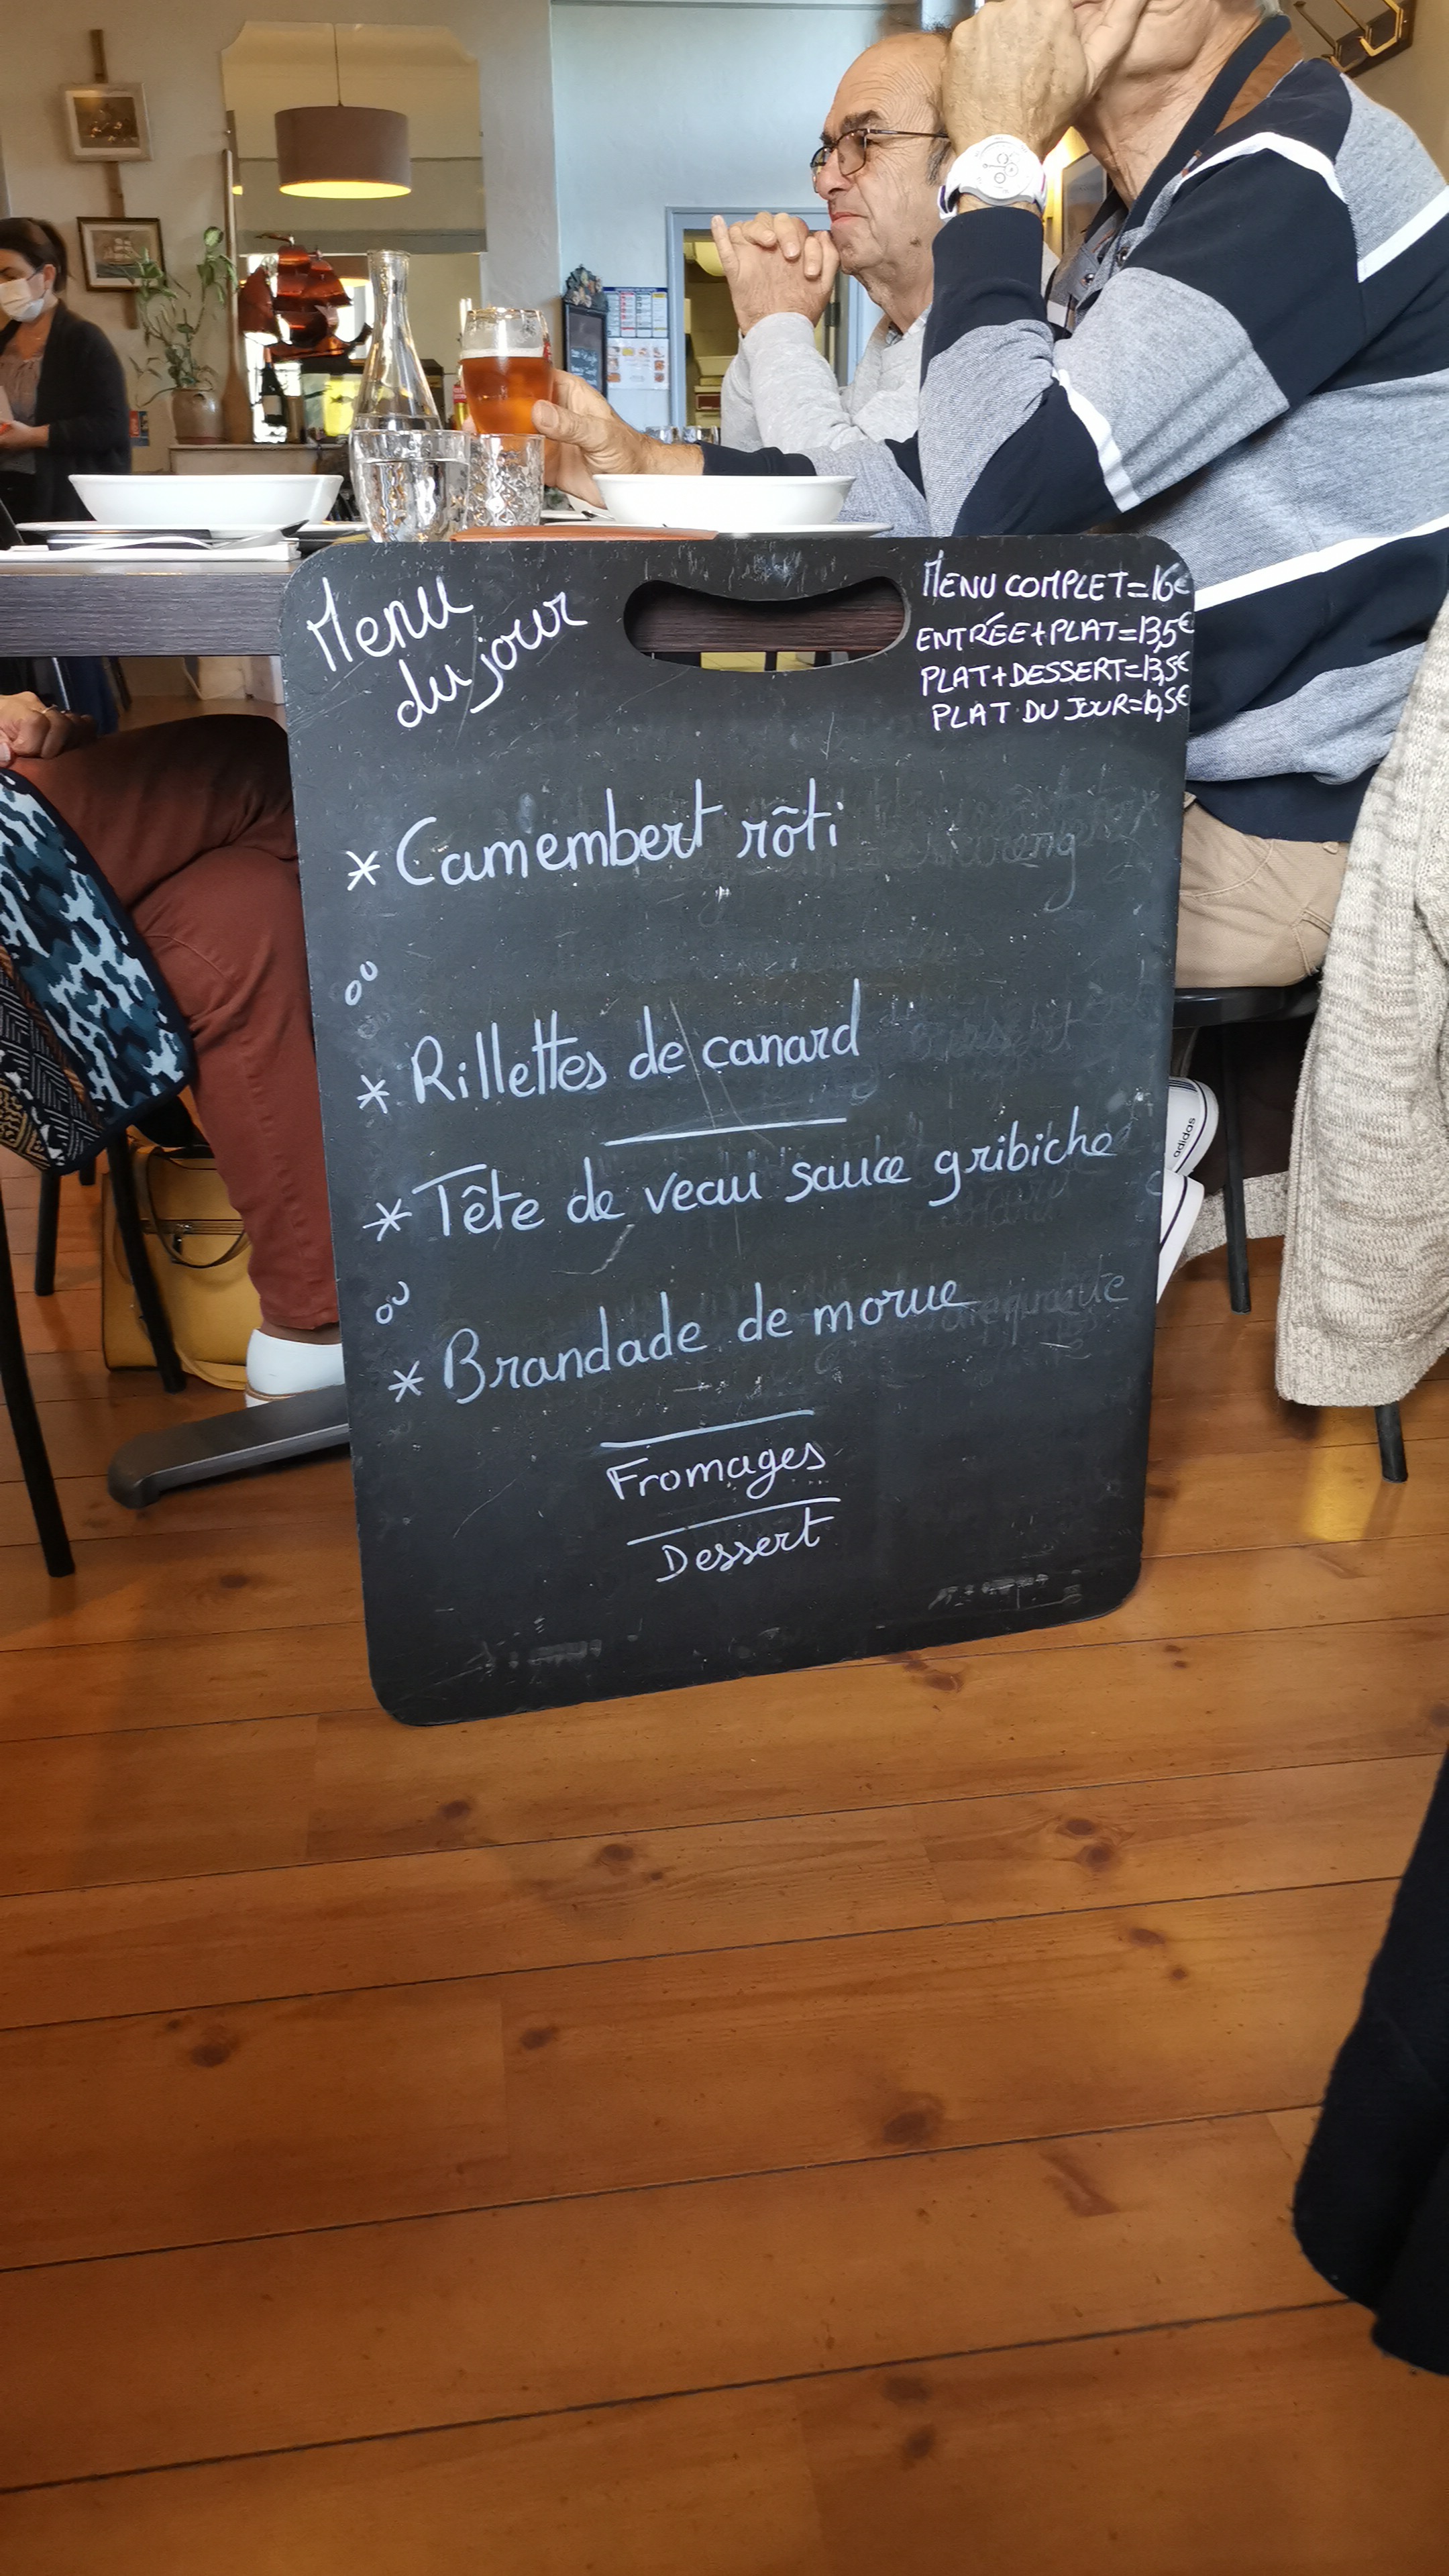 Menu
du jour
MENU COMPLET=16€
ENTRÉE+PLAT=13,5€
PLAT+DESSERT=13,5€
PLAT DU JOUR=10,5€
* Camembert rôti
ou
* Rillettes de canard
* Tête de veau sauce gribiche
ou
* Brandade de morue
Fromages
Dessert
adidas